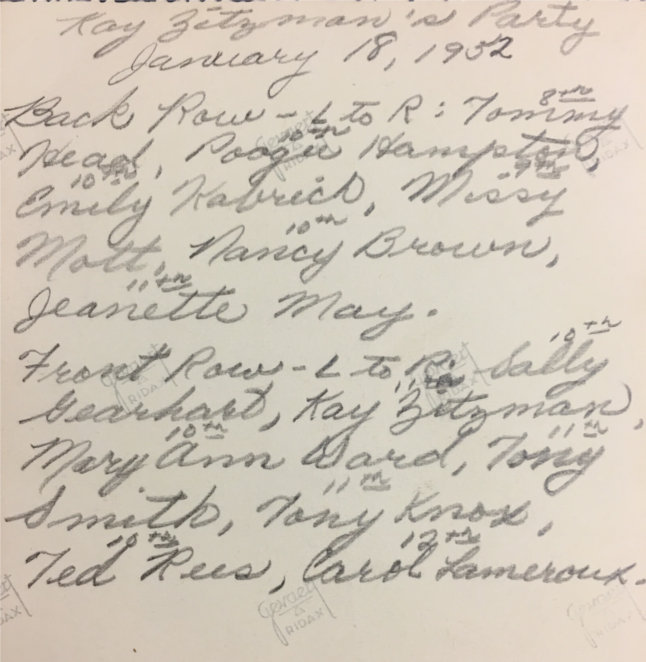 Kay Zitzman's Party
January 18, 1952
Back Row - L to R: Tommy 8th
Head, Poogie 10th Hampton,
Emily 10th Kabrich, Missy 9th
Mott, Nancy 10th Brown,
Jeanette 11th May.
Front Row - L to R: Sally 10th
Gearhart, Kay Zitzman 11th,
Mary Ann 10th Ward, Tony 11th
Smith, Tony 11th Knox,
Ted 10th Rees, Carol 12th Lameroux.
Gevaert
RIDAX